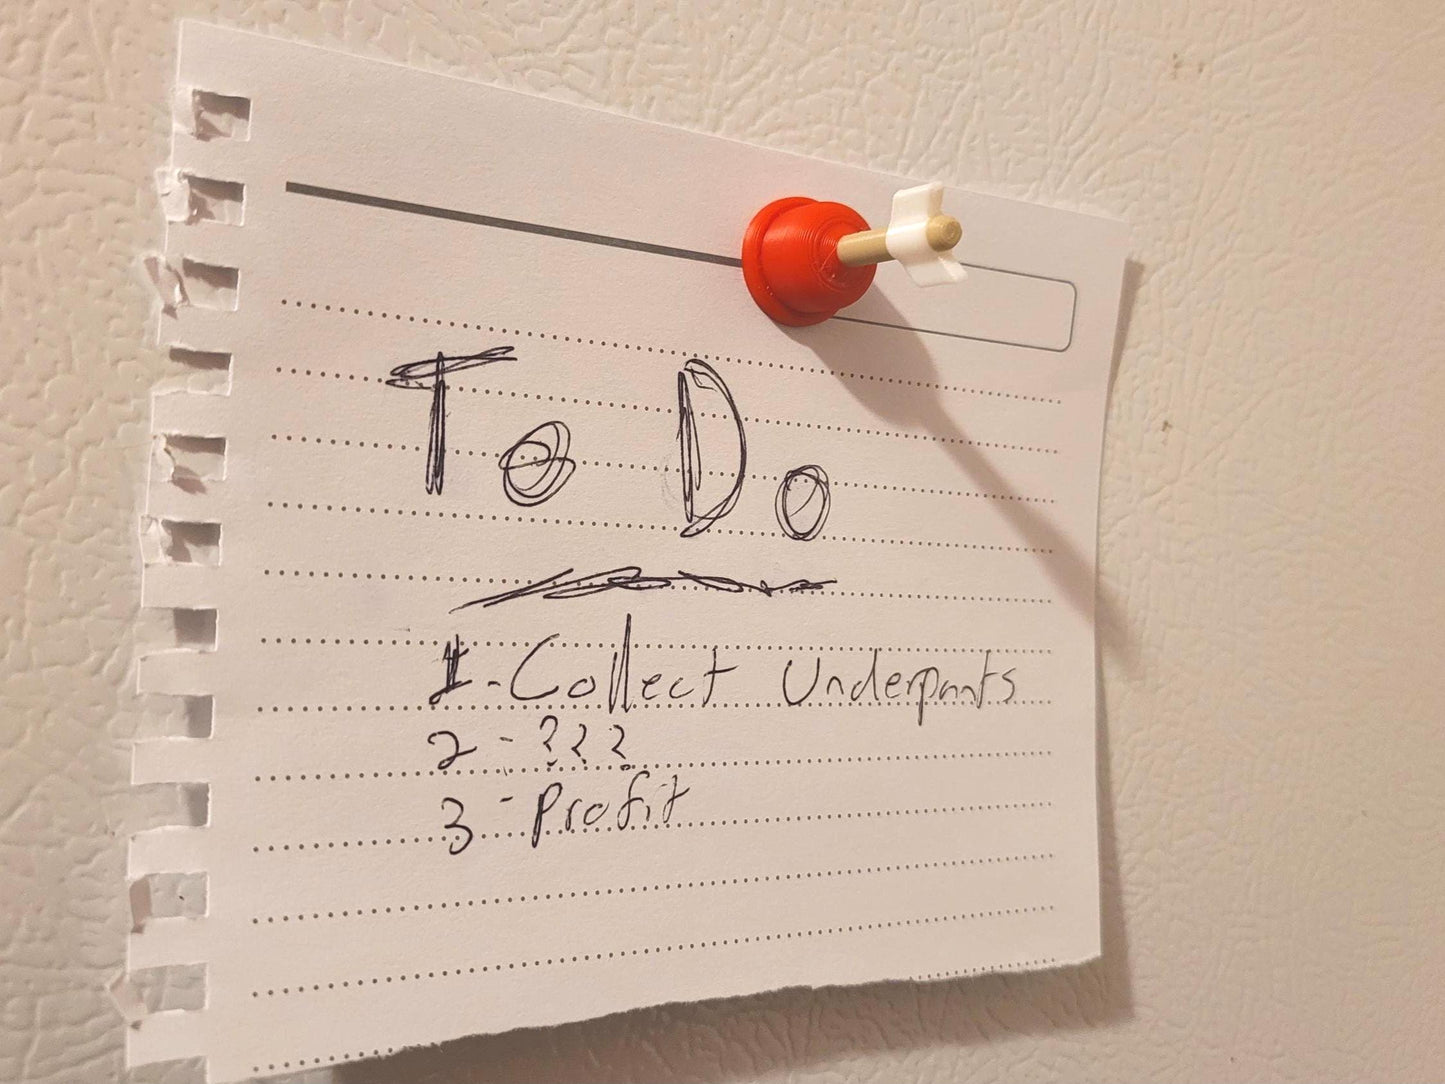 To Do
1 - Collect Underpants
2 - ???
3 - Profit